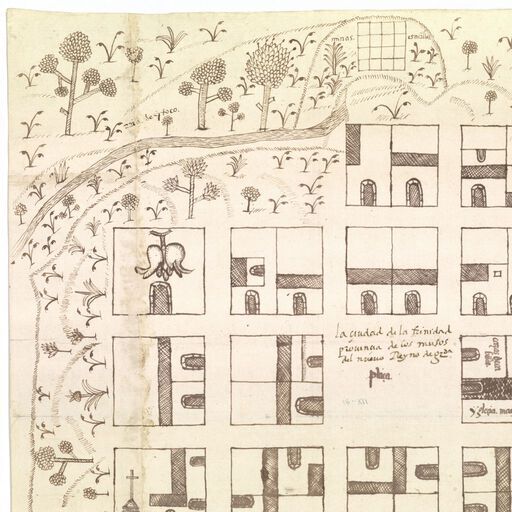 minas
esmeraldas
rio de ytoco.
la ciudad de la trinidad
provincia de los musos
del nuevo Reyno de grda
plaça.
16-XII
yglesia ma